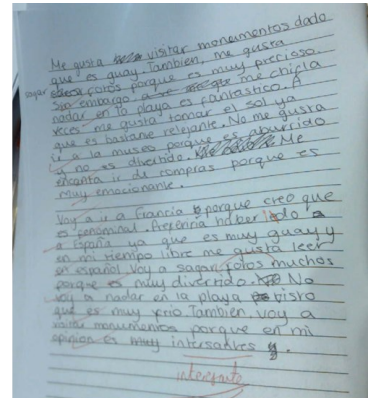 Me gusta visitar monumentos dado
que es guay. Tambien, me gusta
sagar fotos porque es muy precioso.
Sin embargo, me chifla
nadar en la playa es fantastico. A
veces me gusta tomar el sol ya
que es bastante relejante. No me gusta
ir a la museo porque es aburrido
y no es divertido. Me
encanta ir de compras porque es
muy emocionante.
Voy a ir a Francia porque creo que
es fenominal. Preferiria haber ido
a España ya que es muy guay y
en mi tiempo libre me gusta leer
en español. Voy a sagar fotos muchos
porque es muy divertido. No
voy a nadar en la playa visto
que es muy frio. Tambien, voy a
visitar monumentos porque en mi
opinion es muy